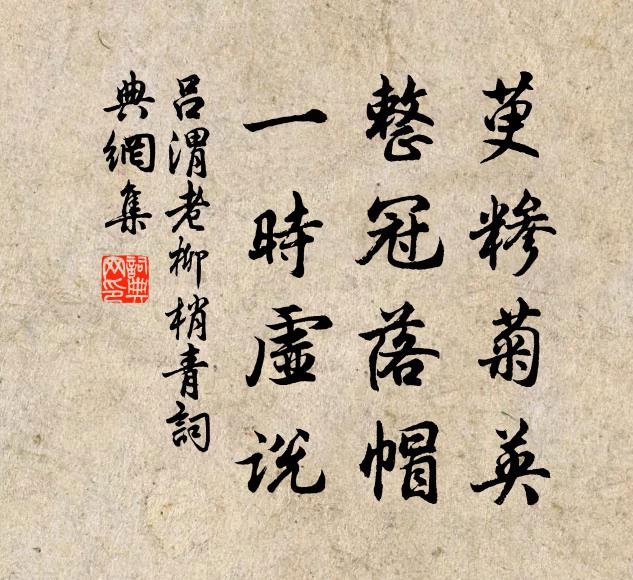 萸糝菊英
整冠落帽
一時虛說
呂渭老柳梢青詞
典網集
詞典網印